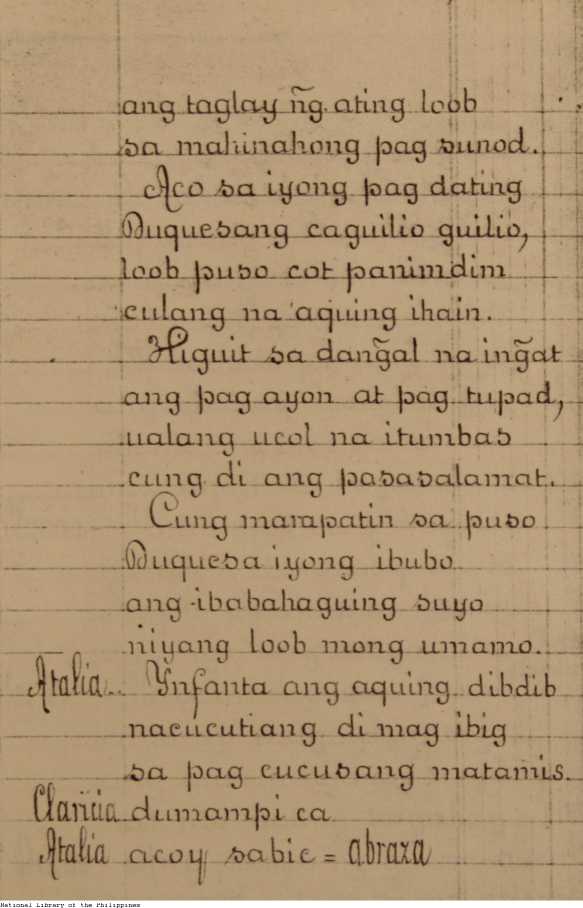 ang taglay ñg. ating loob
sa mahinahong pag sunod.
Aco sa iyong pag dating
Duquesang caguilio guilio,
loob puso cot panimdim
culang na aquing ihain.
Higuit sa dang̃al na ing̃at
ang pag ayon at pag tupad,
ualang ucol na itumbas
cung di ang pasasalamat.
Cung marapatin sa puso
Duquesa iyong ibubo
ang ibabahaguing suyo
niyang loob mong umamo.
Atalia.. Ynfanta ang aquing dibdib
nacucutiang di mag ibig
sa pag cucusang matamis.
Claricia dumampi ca
Atalia acoy sabic = abraza
National Library of the Philippines